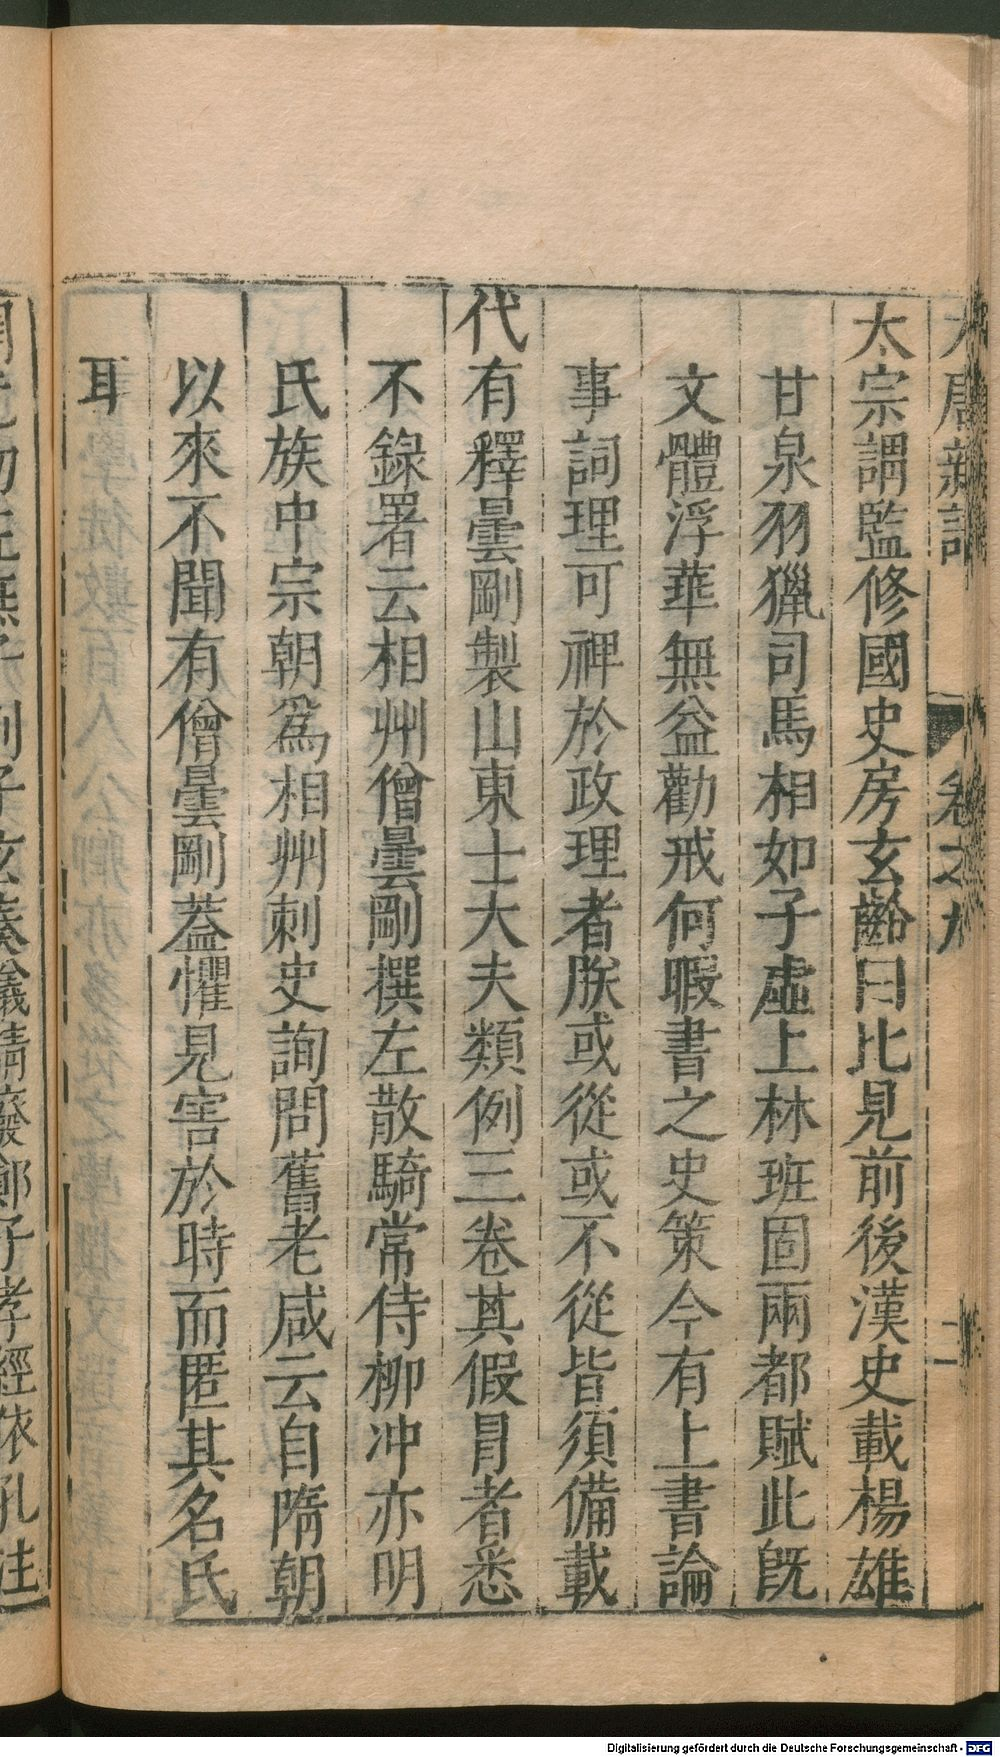 太宗謂監修國史房玄齡曰比見前後漢史載楊雄
甘泉羽獵司馬相如子虛上林班固兩都賦此旣
文體浮華無益勸戒何暇書之史策今有上書論
事詞理可裨於政理者朕或從或不從皆須備載
代有釋曇剛製山東士大夫類例三卷其假冐者悉
不錄署云相州僧曇剛撰左散騎常侍柳冲亦明
氏族中宗朝爲相州刺史詢問舊老咸云自隋朝
以來不聞有僧曇剛蓋懼見害於時而匿其名氏
耳
唐新語 卷之九 二
子孝經依孔注
Digitalisierung gefördert durch die Deutsche Forschungsgemeinschaft - DFG